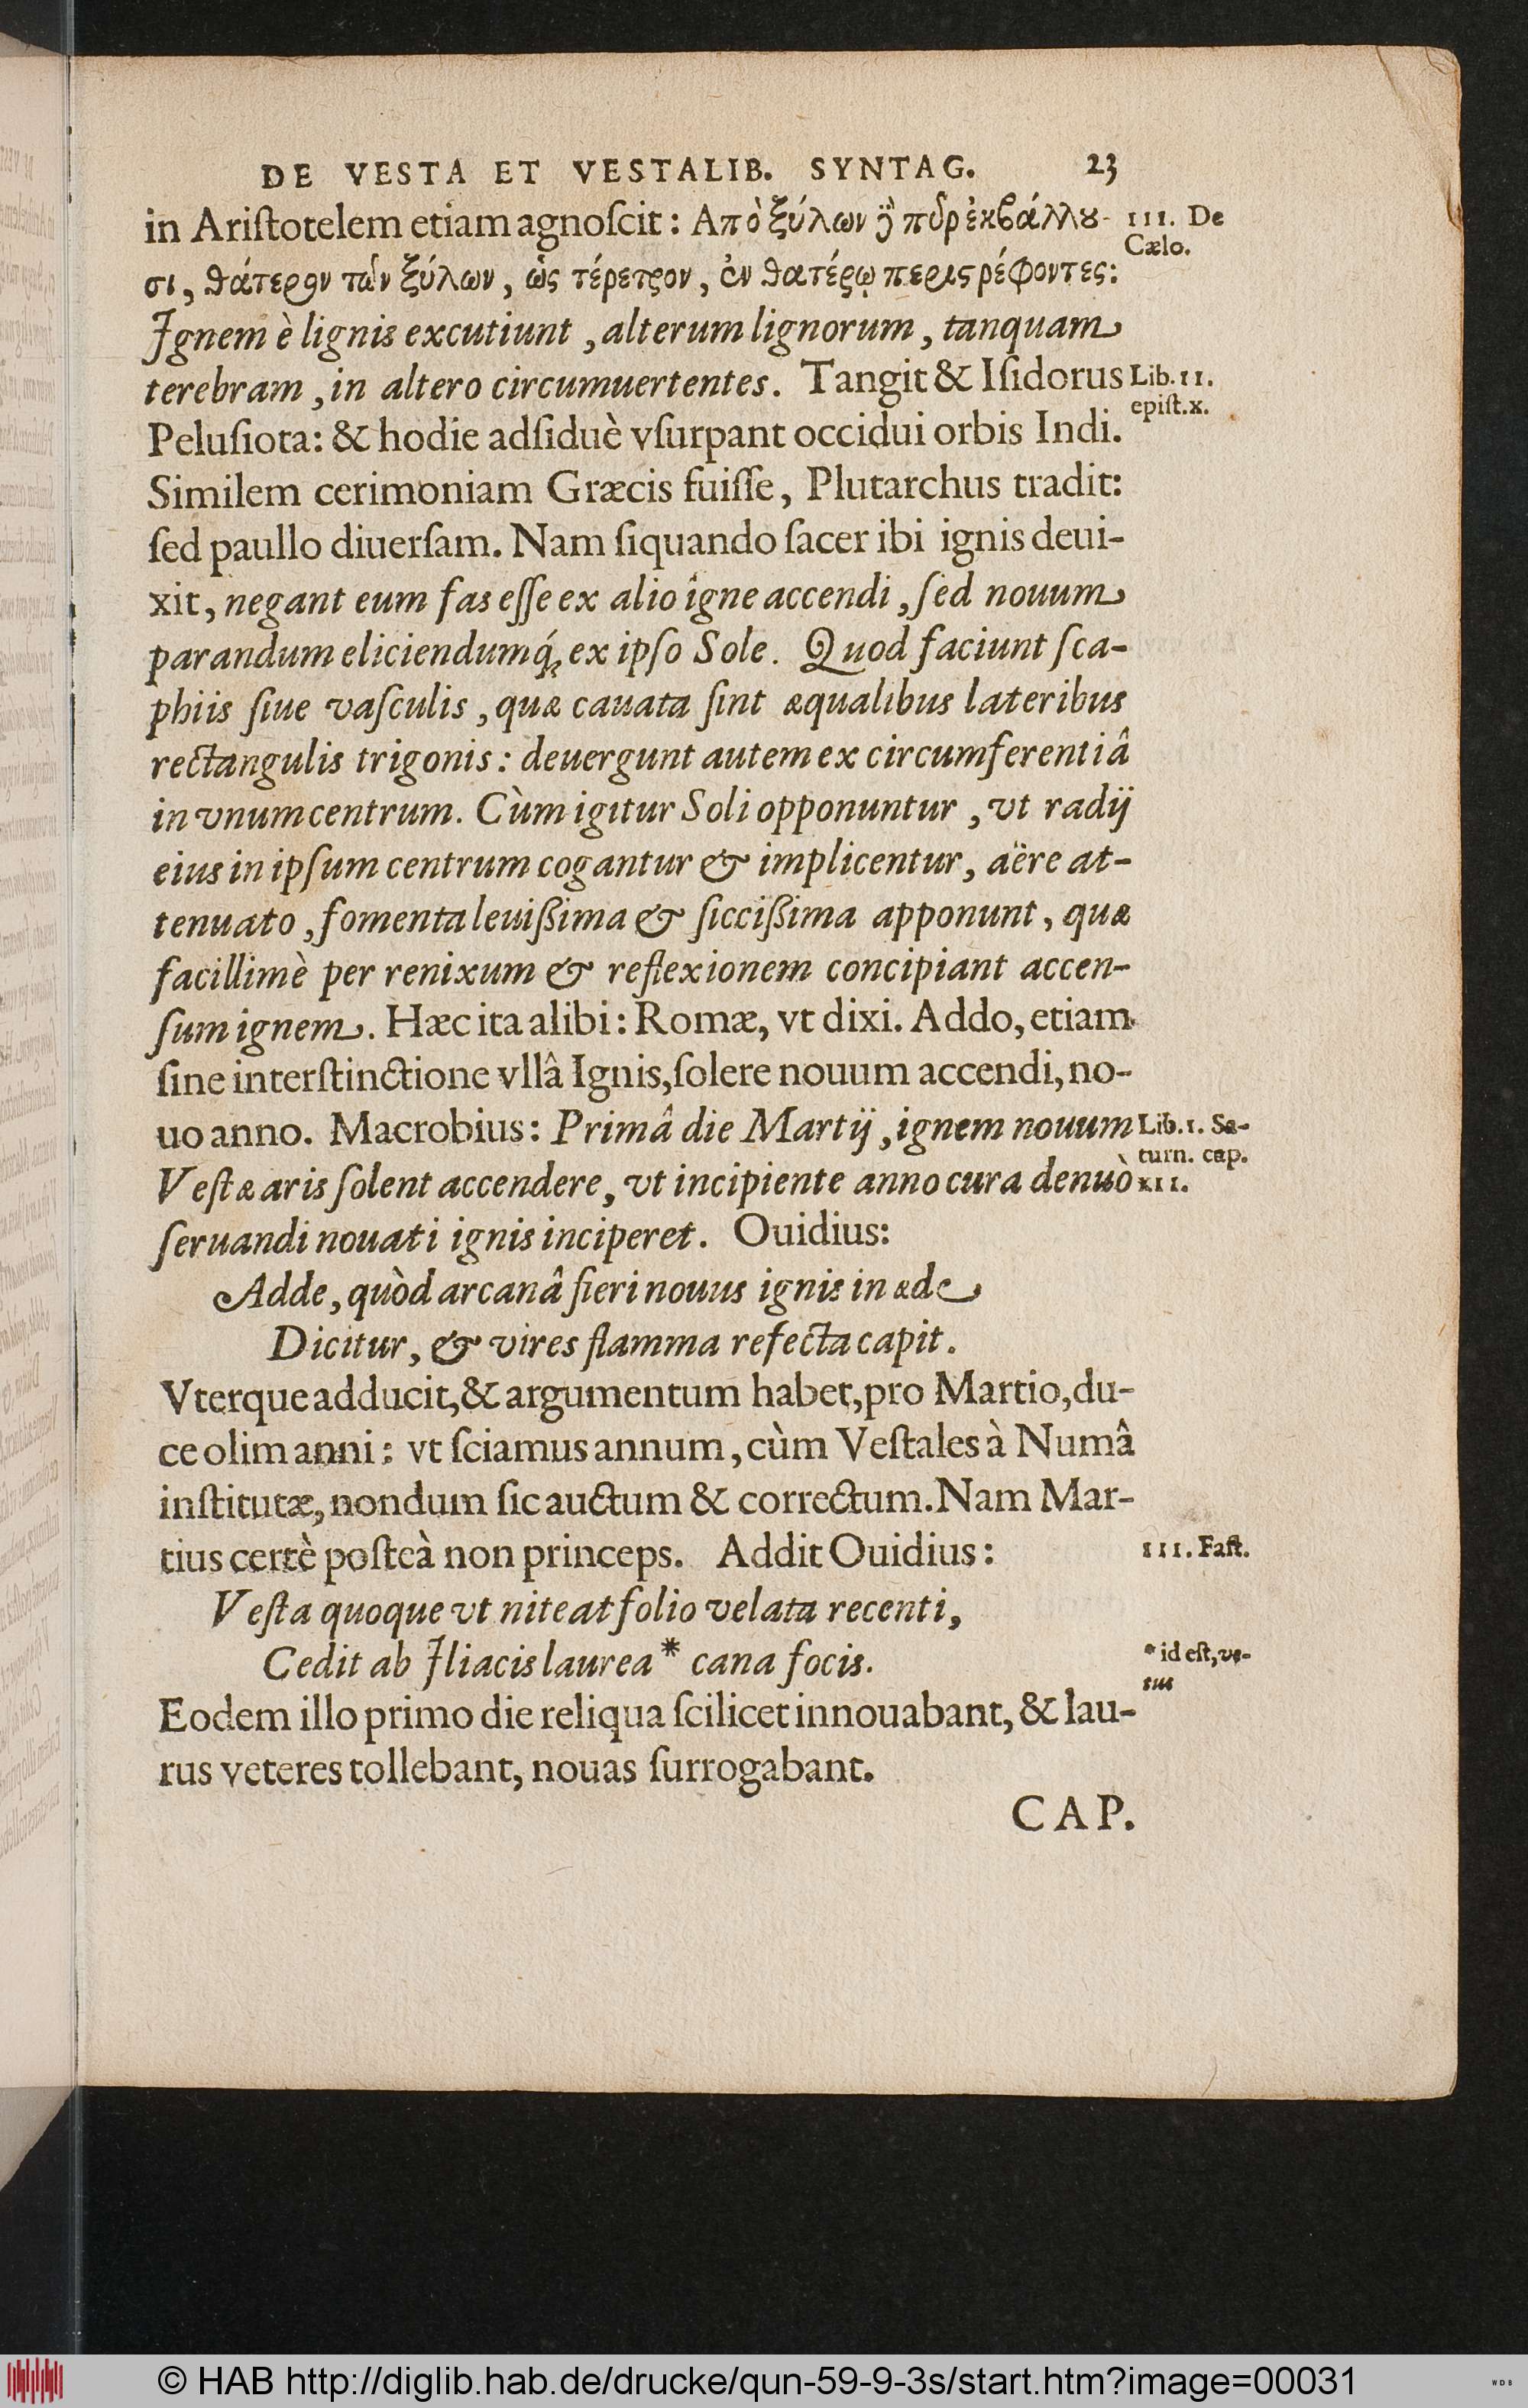 DE VESTA ET VESTALIB. SYNTAG. 23
in Ariſtotelem etiam agnoſcit: Απὸ ξύλων ȣ̃ πῦρ ἐκβάλλȣ- III. De
Cælo.
σι, θάτερον τῶν ξύλων, ὡς τέρετρον, ἐν θατέρῳ περιςρέφοντες:
Ignem è lignis excutiunt, alterum lignorum, tanquam
terebram, in altero circumuertentes. Tangit & Iſidorus Lib. II.
epiſt. x.
Peluſiota: & hodie adſiduè vſurpant occidui orbis Indi.
Similem cerimoniam Græcis fuiſſe, Plutarchus tradit:
ſed paullo diuerſam. Nam ſiquando ſacer ibi ignis deui-
xit, negant eum fas eſſe ex alio igne accendi, ſed nouum
parandum eliciendumq́; ex ipſo Sole. Quod faciunt ſca-
phiis ſiue vaſculis, quæ cauata ſint æqualibus lateribus
rectangulis trigonis: deuergunt autem ex circumferentiâ
in vnum centrum. Cùm igitur Soli opponuntur, vt radij
eius in ipſum centrum cogantur & implicentur, aëre at-
tenuato, fomenta leuiſſima & ſicciſſima apponunt, quæ
facillimè per renixum & reflexionem concipiant accen-
ſum ignem. Hæc ita alibi: Romæ, vt dixi. Addo, etiam
ſine interſtinctione vllâ Ignis, ſolere nouum accendi, no-
uo anno. Macrobius: Primâ die Martij, ignem nouum Lib. I. Sa-
turn. cap.
Veſtæ aris ſolent accendere, vt incipiente anno cura denuò XII.
ſeruandi nouati ignis inciperet. Ouidius:
Adde, quòd arcanâ fieri nouus ignis in æde
Dicitur, & vires flamma refecta capit.
Vterque adducit, & argumentum habet, pro Martio, du-
ce olim anni: vt ſciamus annum, cùm Veſtales à Numâ
inſtitutæ, nondum ſic auctum & correctum. Nam Mar-
tius certè poſteà non princeps. Addit Ouidius: III. Faſt.
Veſta quoque vt niteat folio velata recenti,
Cedit ab Iliacis laurea * cana focis. * id eſt, ve-
tus
Eodem illo primo die reliqua ſcilicet innouabant, & lau-
rus veteres tollebant, nouas ſurrogabant.
CAP.
© HAB http://diglib.hab.de/drucke/qun-59-9-3s/start.htm?image=00031